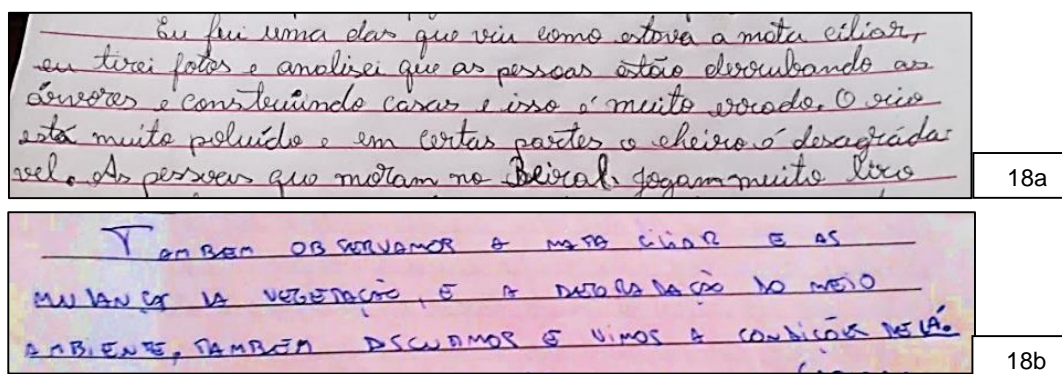 Eu fui uma das que viu como estava a mata ciliar,
eu tirei fotos e analisei que as pessoas estão derrubando as
árvores e construindo casas e isso é muito errado. O rio
está muito poluído e em certas partes o cheiro é desagrada-
vel. As pessoas que moram no Beiral jogam muito lixo
18a
TAMBEM OBSERVAMOR A MATA CILIAR E AS
VEGETAÇÃO, E A DO MEIO
AMBIENTE, TAMBÉM E VIMOS A CONDIÇÕES
18b